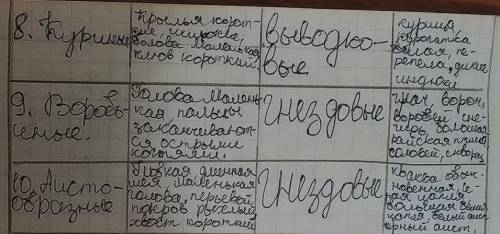 8. Куриные
Крылья корот-
кие, широкие,
голова маленькая
клюв короткий.
выводко-
вые
курица
куропатка
белая, пе-
репела, дикие
индюки
9. Воробь-
иные.
Голова малень-
кая пальцы
заканчивают-
ся острыми
когтями.
гнездовые
грач, ворон,
воробей, сне-
гирь, большая
райская птица,
соловей, скворец
10. Аисто-
образные
Гибкая длинная
шея, маленькая
голова, перьевой
покров рыхлый
хвост короткий
гнездовые
кваква обык-
новенная, се-
рая цапля
большая белая
цапля, белый аист,
черный аист,